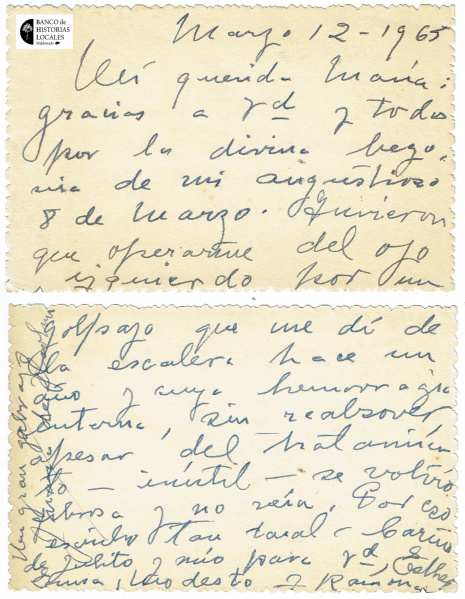 BANCO de
HISTORIAS
LOCALES
Marzo 12-1965
Mi querida María:
gracias a Vd y todos
por la divina bego,
nia de mi angustioso
8 de Marzo. Tuvieron
que operarme del ojo
izquierdo por un
golpazo que me dí de
la escalera hace un
año y cuya hemorragia
interna, sin reabsover,
apesar del tratamien
to - inútil - se volvió
y no veía. Por eso
escribo tan mal - Cariños
de Julito y míos para Vd, Esther
Laura, Modesto y Ramona
Un gran abrazo